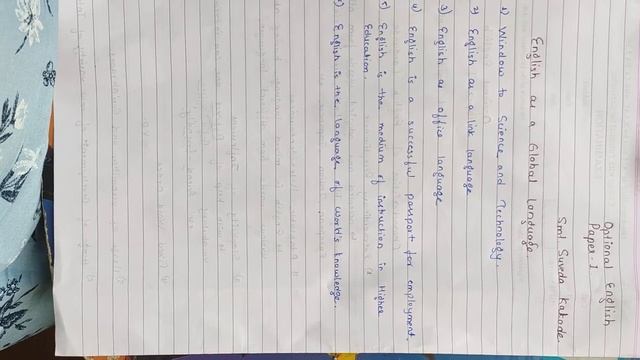 Optional English
Paper-I
Smt Suveda Kakade
English as a Global Language.
1) Window to Science and Technology.
2) English as a link language
3) English as office language
4) English is a successful passport for employment.
5) English is the medium of instruction in Higher
Education.
6) English is the language of work's knowledge.